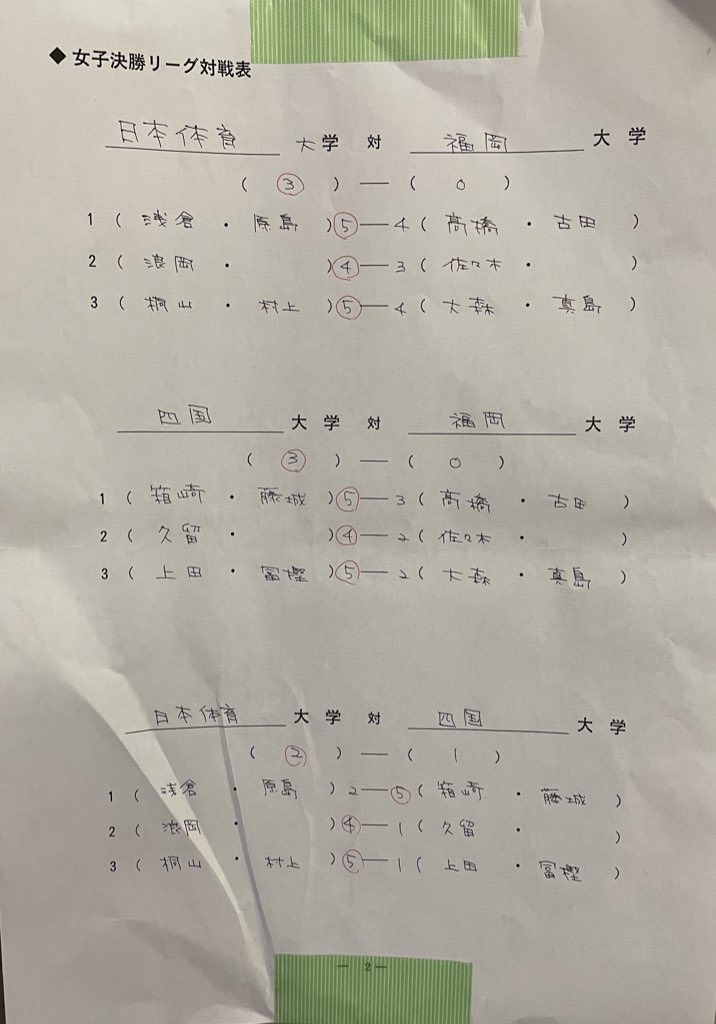 ◆ 女子決勝リーグ対戦表
日本体育 大学 対 福岡 大学
( ③ ) — ( 0 )
1 ( 浅倉 ・ 原島 ) ⑤ — 4 ( 高橋 ・ 古田 )
2 ( 浪岡 ・ ) ④ — 3 ( 佐々木 ・ )
3 ( 桐山 ・ 村上 ) ⑤ — 4 ( 大森 ・ 真島 )
四国 大学 対 福岡 大学
( ③ ) — ( 0 )
1 ( 箱崎 ・ 藤城 ) ⑤ — 3 ( 高橋 ・ 古田 )
2 ( 久留 ・ ) ④ — 2 ( 佐々木 ・ )
3 ( 上田 ・ 冨樫 ) ⑤ — 2 ( 大森 ・ 真島 )
日本体育 大学 対 四国 大学
( ② ) — ( 1 )
1 ( 浅倉 ・ 原島 ) 2 — ⑤ ( 箱崎 ・ 藤城 )
2 ( 浪岡 ・ ) ④ — 1 ( 久留 ・ )
3 ( 桐山 ・ 村上 ) ⑤ — 1 ( 上田 ・ 冨樫 )
— 2 —